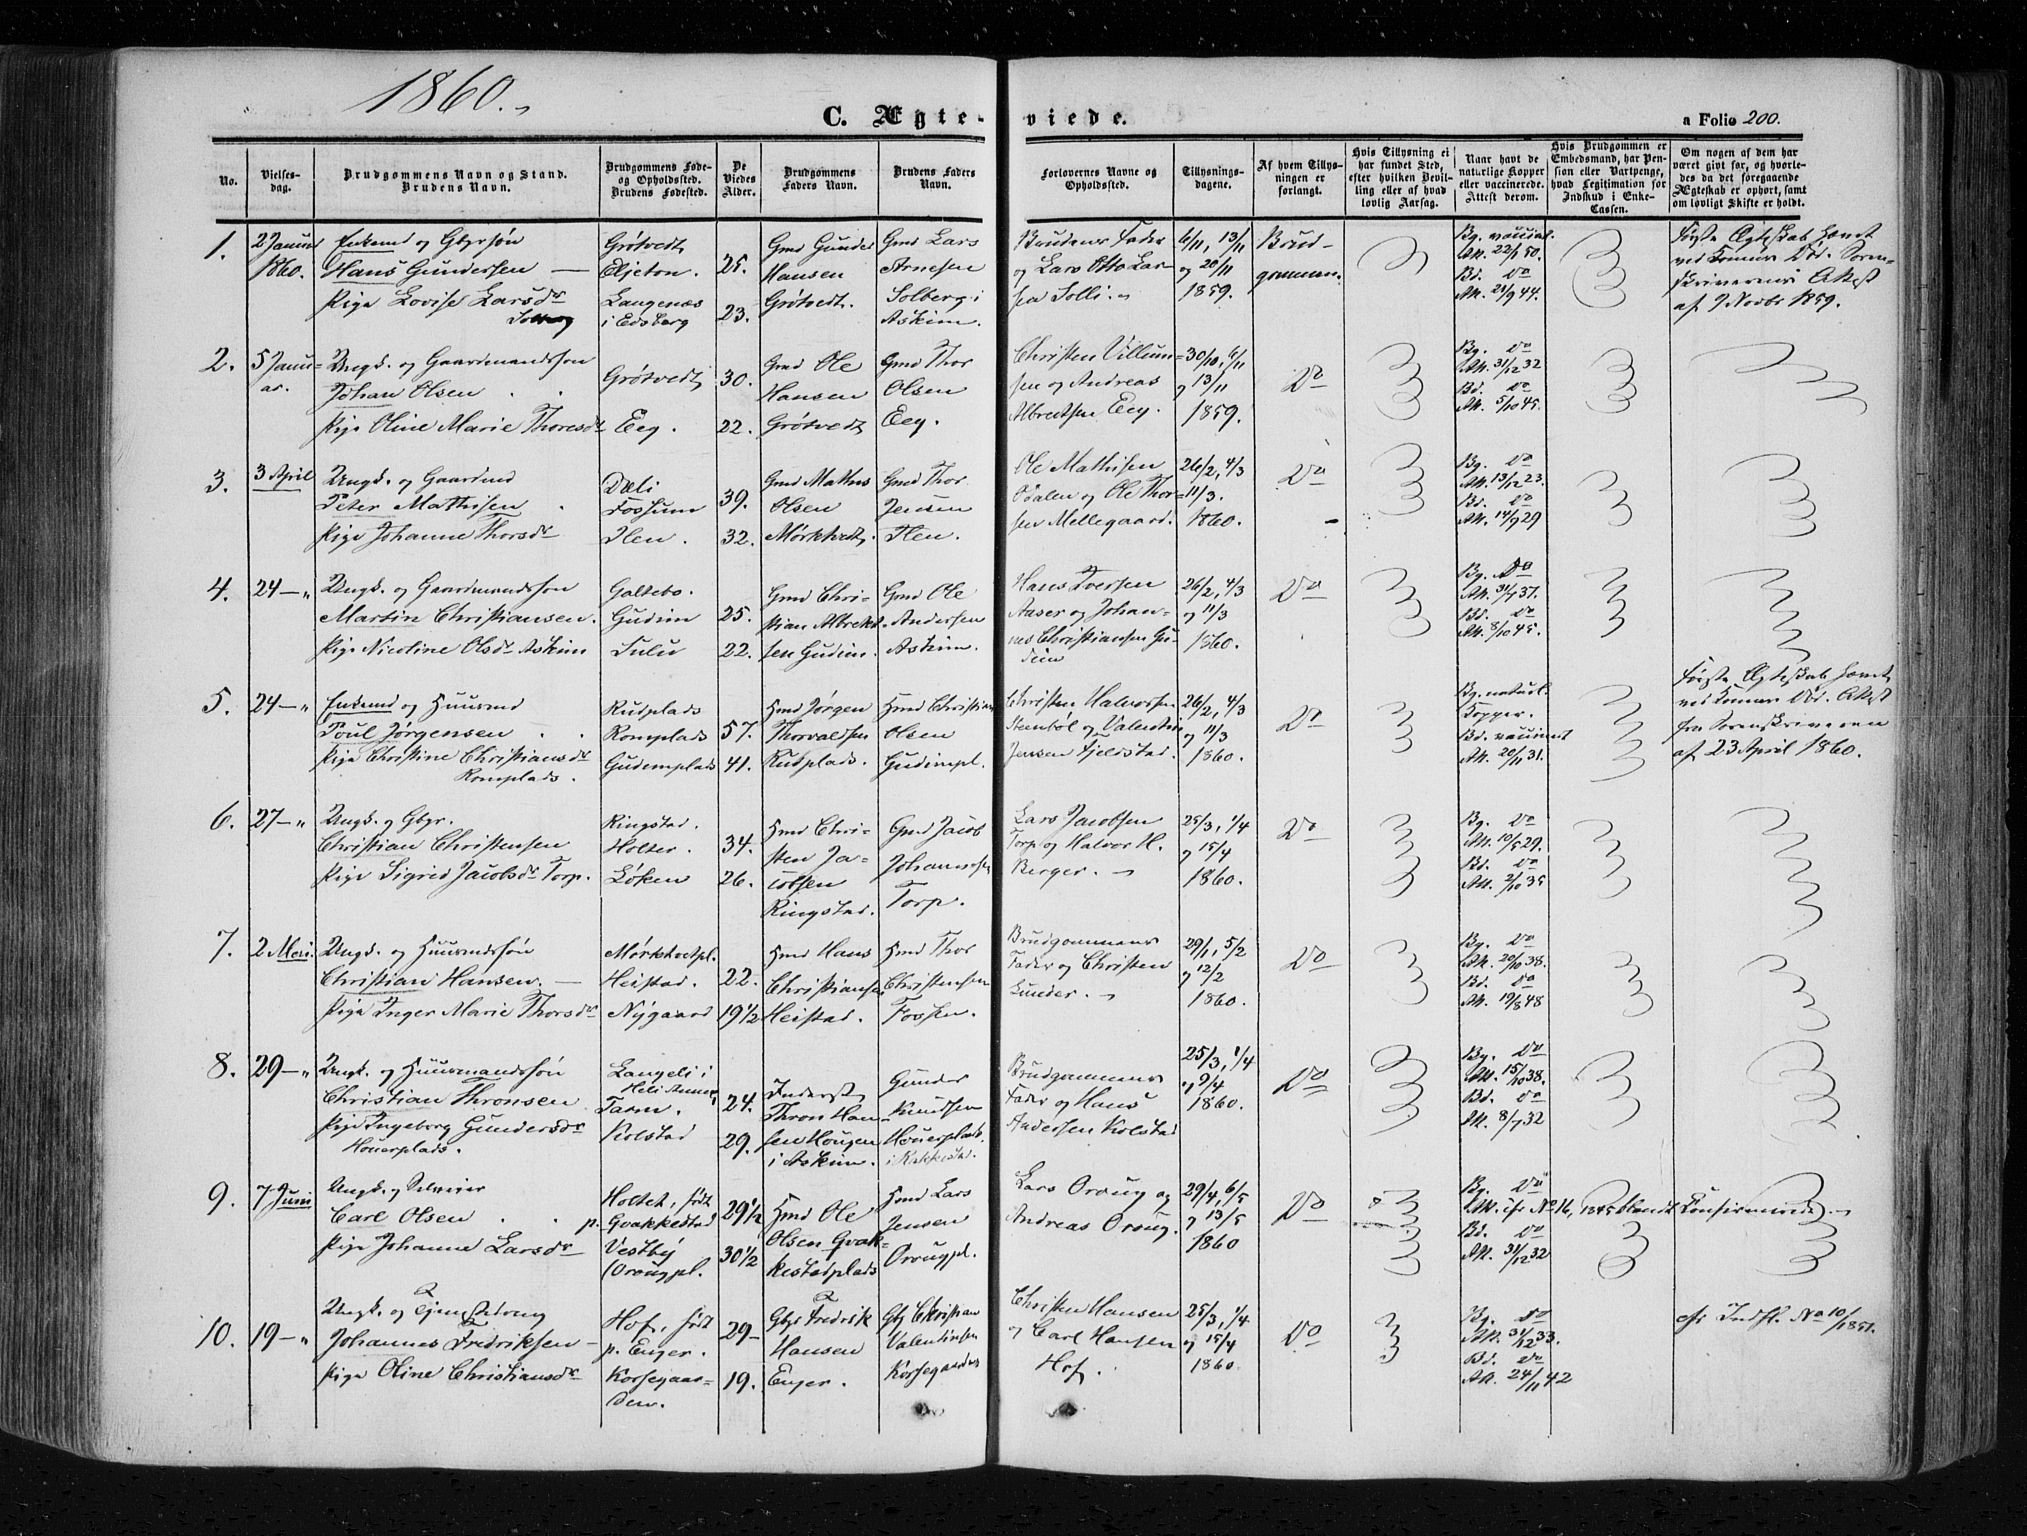 1860.
C. Ægte-
viede.
a Folio 200.
No.
Vielses-
dag.
Brudgommens Navn og Stand.
Brudens Navn.
Brudgommens Føde-
og Opholdssted.
Brudens Fødested.
De
Viedes
Alder.
Brudgommens
Faders Navn.
Brudens Faders
Navn.
Forlovernes Navne og
Opholdssted.
Tillysnings-
dagene.
Af hvem Tillys-
ningen er
forlangt.
Hvis Tillysning ei
har fundet Sted,
efter hvilken Bevil-
ling eller af hvad
lovlig Aarsag.
Naar havt de
naturlige Kopper
eller vaccinerede.
Attest derom.
Hvis Brudgommen er
Embedsmand, har Pen-
sion eller Vartpenge,
hvad Legitimation for
Indskud i Enke-
Cassen.
Om nogen af dem har
været gift før, og hvorle-
des da det foregaaende
Ægteskab er ophørt, samt
om lovligt Skifte er holdt.
1.
2 Januar
1860.
Enkemd og Gbyrsøn
Hans Gundersen
Pige Lovise Larsdr
Solberg
Grøtvedt
Eljeton.
Langenæs
i Edsberg
25.
23.
Gmd Gunder
Hansen
Grøtvedt.
Gmd Lars
Arnesen
Solberg i
Askim.
Brudens Fader
og Lars Otto Lar-
sen Solli.
6/11, 13/11
og 20/11
1859.
Brud-
gommen.
Bg. vaccin.
Att. 22/1 50.
Bd. Do
Att. 21/9 44.
Første Ægteskab hævet
ved Konens Død. Soren-
skriverens Attest
af 9 Novbr 1859.
2.
5 Janu-
ar.
Ungk. og Gaardmandssøn
Johan Olsen
Pige Oline Marie Thoresdr
Grøtvedt
Eeg.
30.
22.
Gmd Ole
Hansen
Grøtvedt
Gmd Thor
Olsen
Eeg.
Christen Villum-
sen og Andreas
Albretsen Eeg.
30/10, 6/11
og 13/11
1859.
Do
Bg. Do
Att. 31/12 32
Bd. Do
Att. 5/10 45.
3.
3 April
Ungk. og Gaardmd
Peter Mathisen
Pige Johanne Thorsdr
Dæli
Fossum
Ilen.
39.
32.
Gmd Mathis
Olsen
Mørktvedt,
Gmd Thor
Jensen
Ilen.
Ole Mathisen
Ødalen og Ole Thor-
sen Mellegaard.
26/2, 4/3
11/3.
1860.
Do
Bg. Do
Att. 13/12 23.
Bd. Do
Att. 14/9 29
4.
24 — "
Ungk. og Gaardmandssøn
Martin Christiansen.
Pige Nicoline Olsdr Askim
Galtebo.
Gudim
Sulu
25.
22.
Gmd Chri-
stian Albrekt-
sen Gudim.
Gmd Ole
Andersen
Askim.
Hans Iversen
Aaser og Johan-
nes Christiansen Gu-
dim
26/2, 4/3
og 11/3
1860.
Do
Bg. Do
Bd. Do
Att. 8/10 45.
5.
24 — "
Enkemd og Huusmd
Poul Jørgensen
Pige Christine Christiansdr
Romplads.
Rudplads
Romplads
Gudimplads
57.
41.
Hmd Jørgen
Thorvaldsen
Rudplads.
Hmd Christian
Olsen
Gudimpl.
Christen Halvorsen
Stenbøl og Valentin
Jensen Fjeldstad.
26/2, 4/3
og 11/3
1860.
Do
Bg. naturl.
Kopper.
Bd. vaccinert
Att. 20/11 31.
Første Ægteskab hævet
ved Konens Død. Attest
fra Sorenskriveren
af 23 April 1860.
6.
27 — "
Ungk. og Gbgr.
Christian Christensen
Pige Sigrid Jacobsdr Torp.
Ringstad.
Holter.
Løken
34.
26.
Hmd Chri-
sten Ja-
cobsen
Ringstad.
Gmd Jacob
Johannesen
Torp.
Lars Jacobsen
Torp og Halvor H.
Berger.
25/3, 1/4
og 15/4
1860.
Do
Bg. Do
Att. 10/5 29.
Bd. Do
Att. 2/10 35
7.
2 Mai.
Ungk. og Huusmdssøn
Christian Hansen.
Pige Inger Marie Thorsdr
Mørktvetpl.
Heistad.
Nygaard
22.
19 1/2
Hmd Hans
Christiansen
Heistad.
Hmd Thor
Christensen
Fossen.
Brudgommens
Fader og Christen
Lunder.
29/1, 5/2
og 12/2
1860.
Do
Bg. Do
Att. 20/10 38.
Bd. Do
Att. 19/8 48
8.
29 — "
Ungk. og Huusmandssøn
Christian Thronsen
Pige Ingeborg Gundersdr
Houerplads.
Langeli i
Tarm.
Kolstad
24.
29.
Inderst
Thron Han-
sen Hougen
i Askim.
Gunder
Knudsen
Houerplads.
i Rakkestad.
Brudgommens
Fader og Hans
Andersen Kolstad
25/3, 1/4
og 9/4
1860.
Do
Bg. Do
Att. 15/10 38.
Bd. Do
Att. 8/7 32
9.
7 Juni
Carl Olsen
Pige Johanne Larsdr
Holtet, født
p. Gvakkestad
Vestby
(Ovougpl.
29 1/2
30 1/2
Hmd Ole
Olsen Gvak-
kestadplads
Hmd Lars
Jensen
Ovougpl.
Lars Ovoug og
Andreas Ovoug.
29/4, 6/5
og 13/5
1860
Do
Bg. Do
Att. cfr No 16, 1845 blandt Konfirmerede.
Bd. Do
Att. 31/12 32
10.
19 — "
Ungk. og Tjenestedreng
Johannes Fredriksen
Pige Oline Christiansdr
Hof, født
p. Enger.
Korsegaar-
den.
29
19.
Gbr Fredrik
Hansen
Enger.
Gbr Christian
Valentinsen
Korsegaarden
Christen Hansen
og Carl Hansen
Hof.
25/3, 1/4
og 15/4
1860.
Do
Bg. Do
Att. 31/12 33.
Bd. Do
Att. 24/11 42
cfr Indfl. No 10/1851.